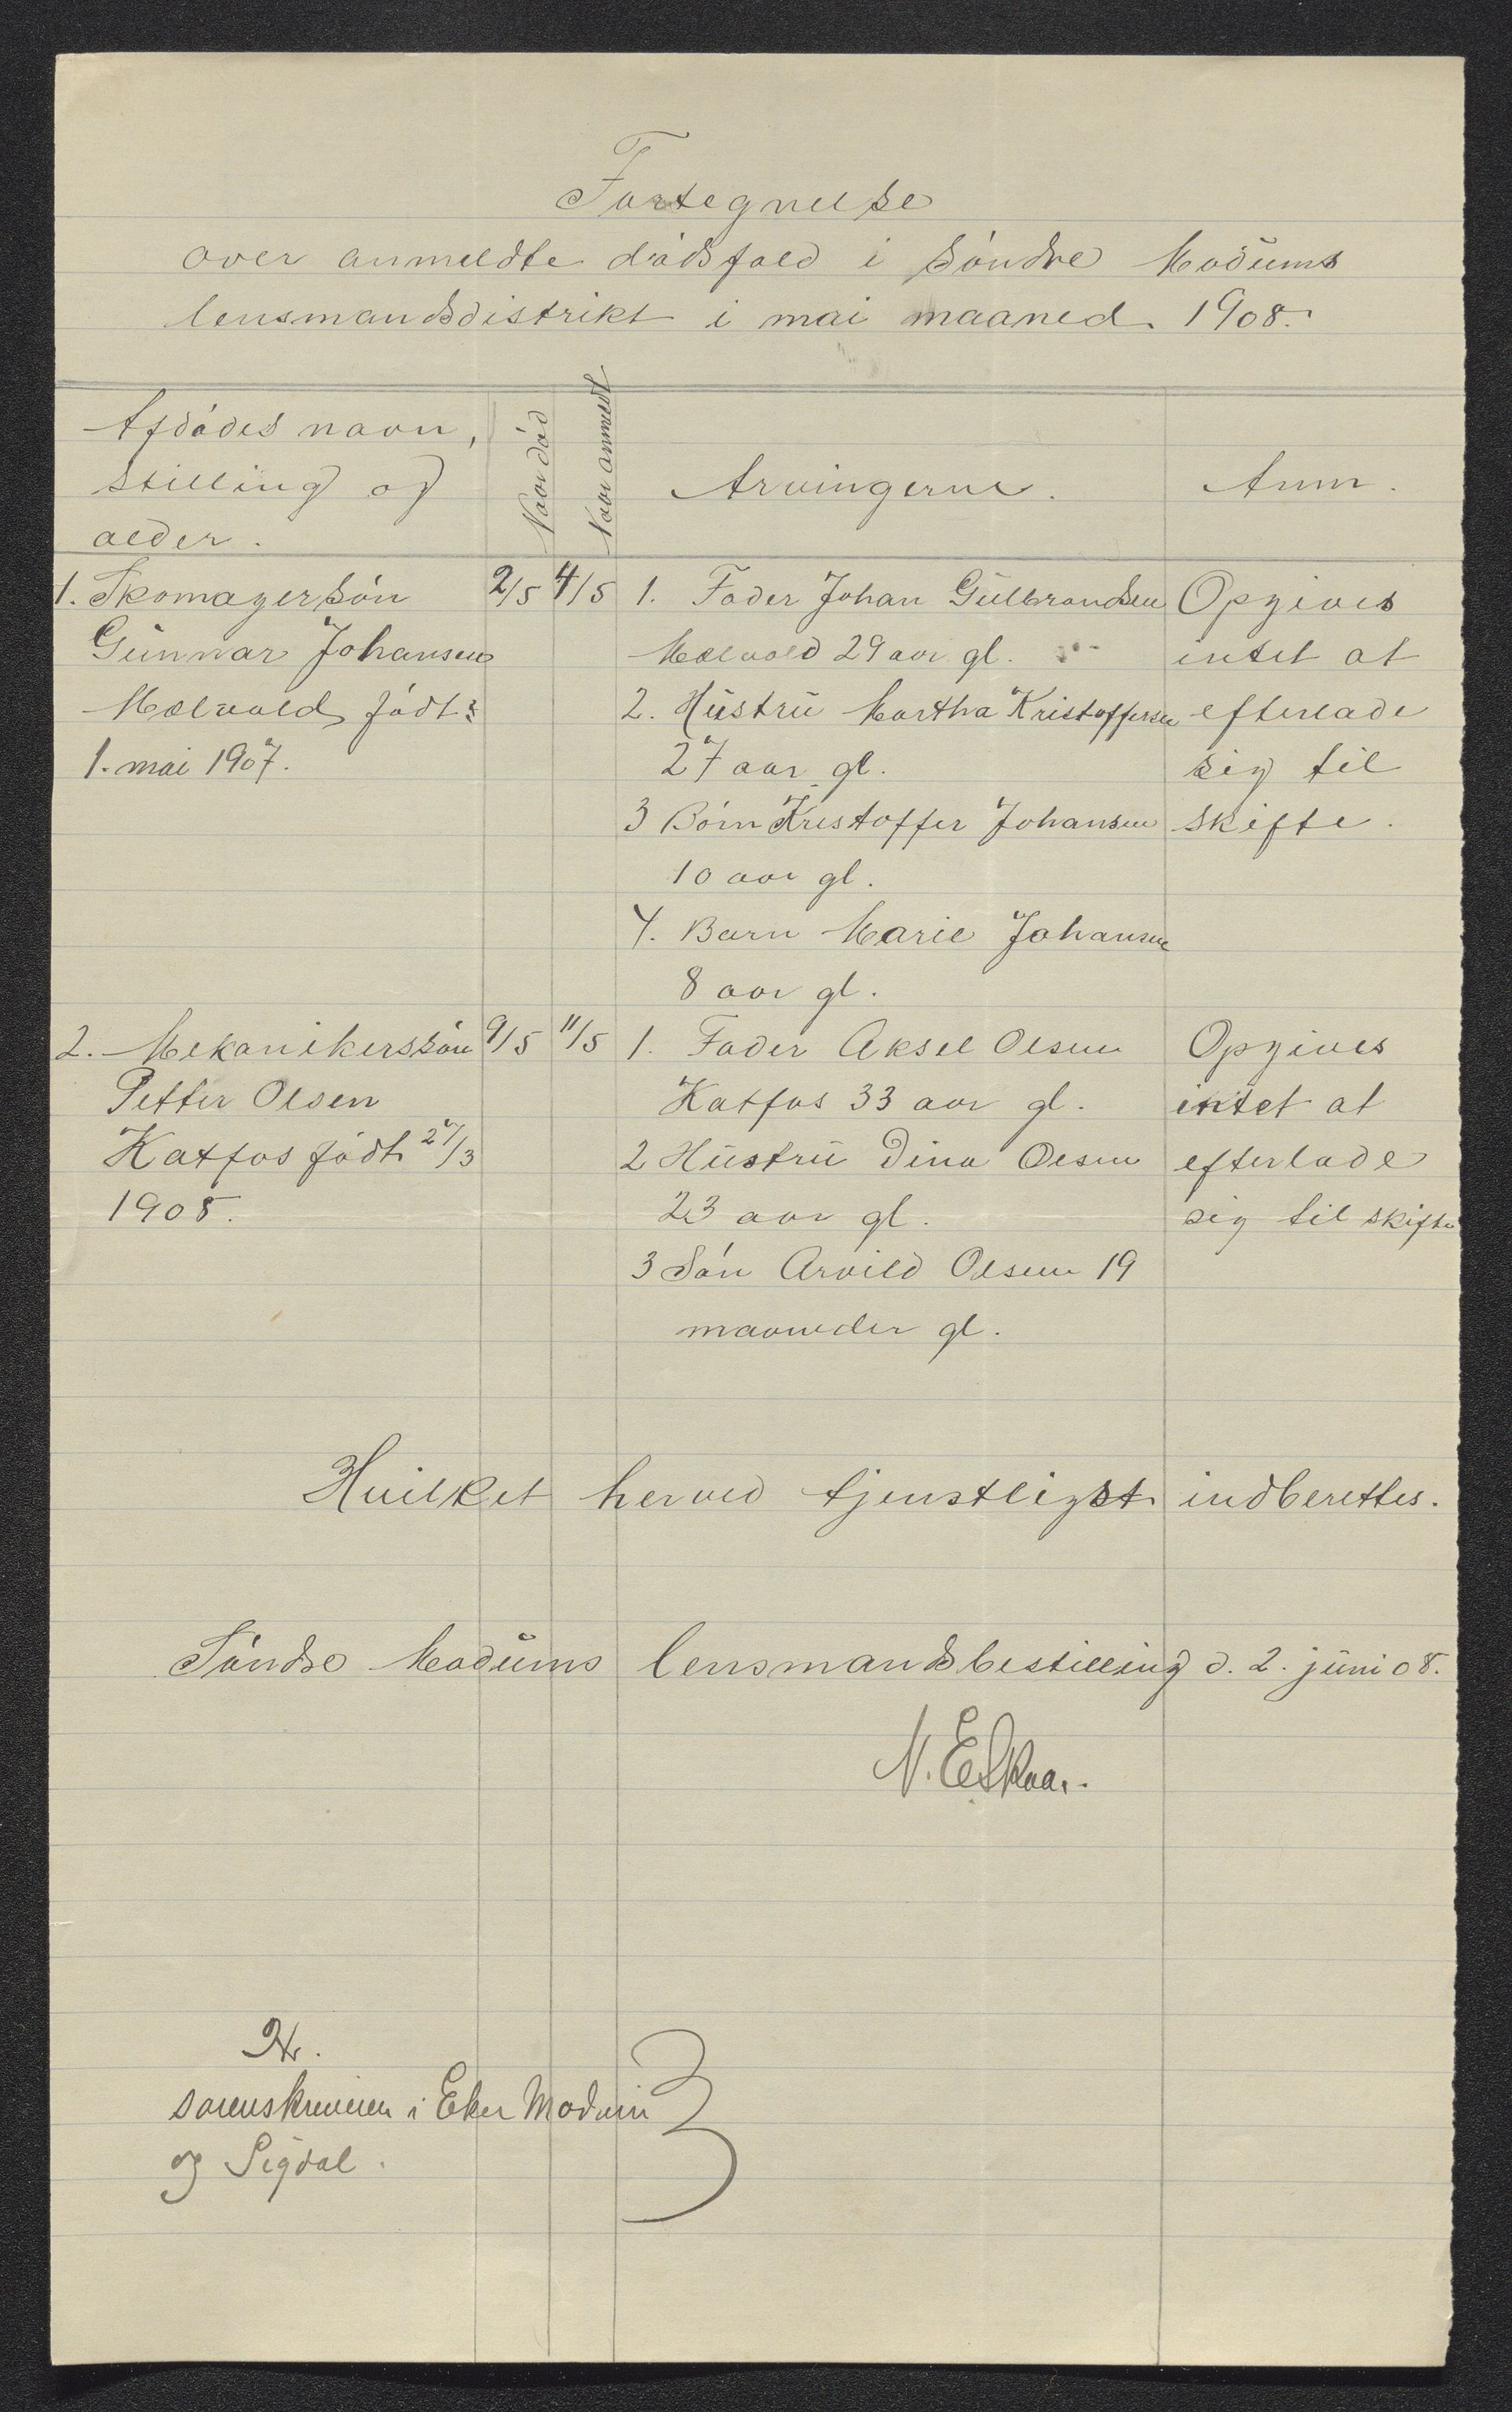 Fortegnelse
over anmeldte dödsfald i Söndre Modums
lensmandsdistrikt i mai maaned 1908.
Afdödes navn,
stilling og
alder.
Naar död
Naar anmeldt
Arvingerne.
Anm.
1. Skomagersön
Gunnar Johansen
Mælvold födt
1. mai 1907.
2/5 4/5
1. Fader Johan Gulbrandsen
Mælvold 29 aar gl.
2. Hustru Martha Kristoffersen
27 aar gl.
3 Börn Kristoffer Johansen
10 aar gl.
4. Barn Marie Johansen
8 aar gl.
Opgives
intet at
efterlade
sig til
skifte.
2. Mekanikerssön
Petter Olsen
Katfos födt 27/3
1908.
9/5 11/5
1. Fader Aksel Olsen
Katfos 33 aar gl.
2 Hustru Dina Olsen
23 aar gl.
3 Sön Arvild Olsen 19
maaneder gl.
Opgives
intet at
efterlade
sig til skifte
Hvilket herved tjenstligst indberettes.
Söndre Modums lensmandsbestilling d. 2. juni 08.
N. E. Skaa..
Hr.
sorenskriveren i Eker Modum
og Sigdal.
3